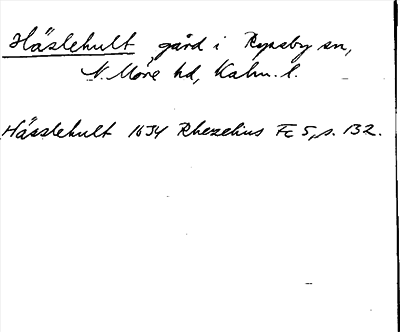 Häslehult, gård i Ryssby sn,
N. Möre hd, Kalm. l.
Hässlehult 1634 Rhezelius Fc 5, s. 132.